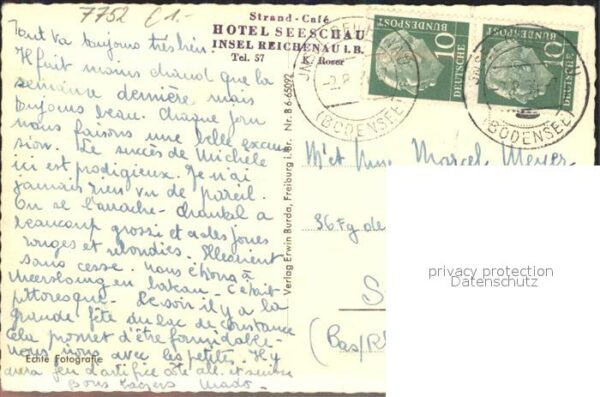 7752 €1.-
Strand-Café
HOTEL SEESCHAU
INSEL REICHENAU I. B.
Tel. 57 K. Roser
10
DEUTSCHE
BUNDESPOST
10
DEUTSCHE
BUNDESPOST
(BODENSEE)
(BODENSEE)
Tout va toujours très bien.
Il fait moins chaud que la
semaine dernière mais
toujours beau. Chaque jour
nous faisons une belle excur
sion. Le succès de Michèle
ici est prodigieux. Je n'ai
jamais rien vu de pareil.
On se l'arrache. Chantal a
beaucoup grossi et a des joues
rouges et rebondies. Elle rient
sans cesse. Nous étions à
Meersbourg en bateau. C'était
pittoresque. Le soir il y a la
Grande fête du lac de Constance
Cela promet d'être formidable.
Nous irons avec les petites. Il y
aura feu d'artifice côté all. et suisse
Bons baisers Mado.
Echte Fotografie
Verlag Erwin Burda, Freiburg i. Br. Nr. B 6-65092
M et Mme Marcel Meyer
36 Fg de
S
(Bas/R
privacy protection
Datenschutz